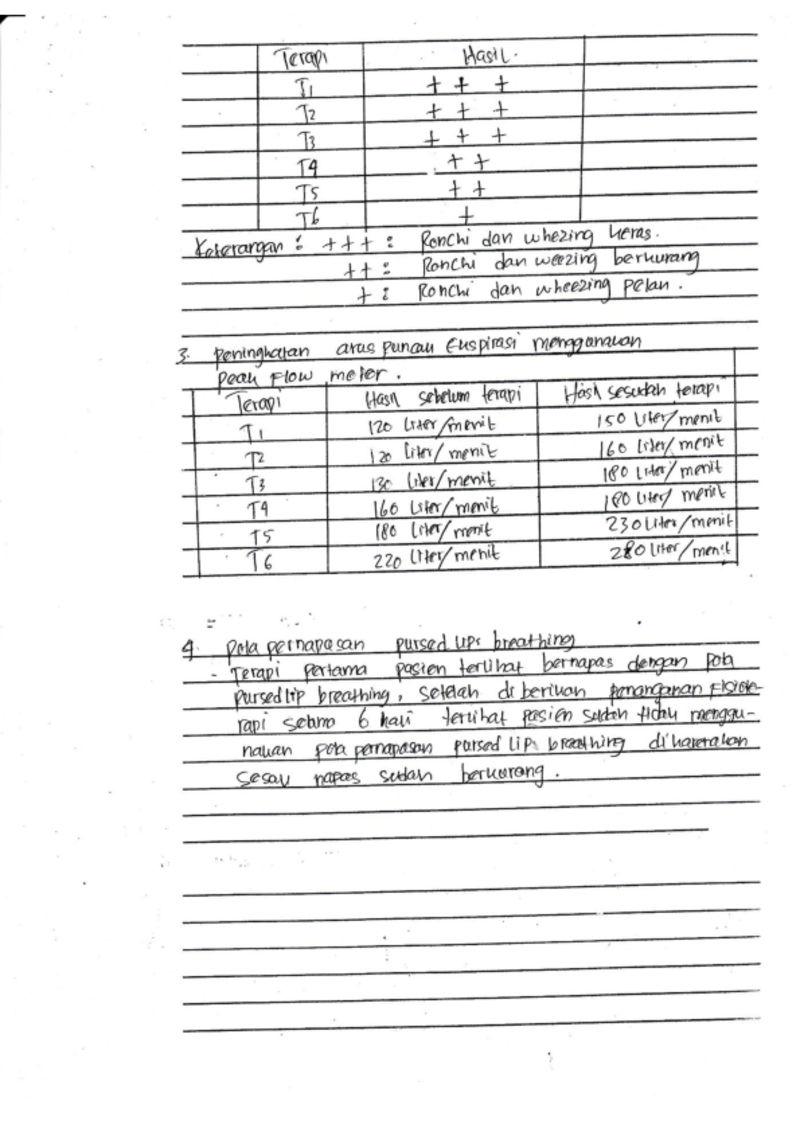 Terapi Hasil.
T1 + + +
T2 + + +
T3 + + +
T4 + +
T5 + +
T6 +
Keterangan : + + + : Ronchi dan whezing keras.
++ : Ronchi dan weezing berkurang
+ : Ronchi dan wheezing pelan.
3. peningkatan arus puncak Ekspirasi menggunakan
peak Flow meter.
Terapi Hasil sebelum terapi Hasil sesudah terapi
T1 120 Liter/menit 150 Liter/menit
T2 120 Liter/menit 160 Liter/menit
T3 130 Liter/menit 180 Liter/menit
T4 160 Liter/menit 180 Liter/menit
T5 180 Liter/menit 230 Liter/menit
T6 220 Liter/menit 280 Liter/menit
4. pola pernapasan pursed lips breathing
- Terapi pertama pasien terlihat bernapas dengan pola
pursed lip breathing, setelah di berikan penanganan Fisiote-
rapi selama 6 kali terlihat pasien sudah tidak menggu-
nakan pola pernapasan pursed lips breathing dikarenakan
sesak napas sudah berkurang.